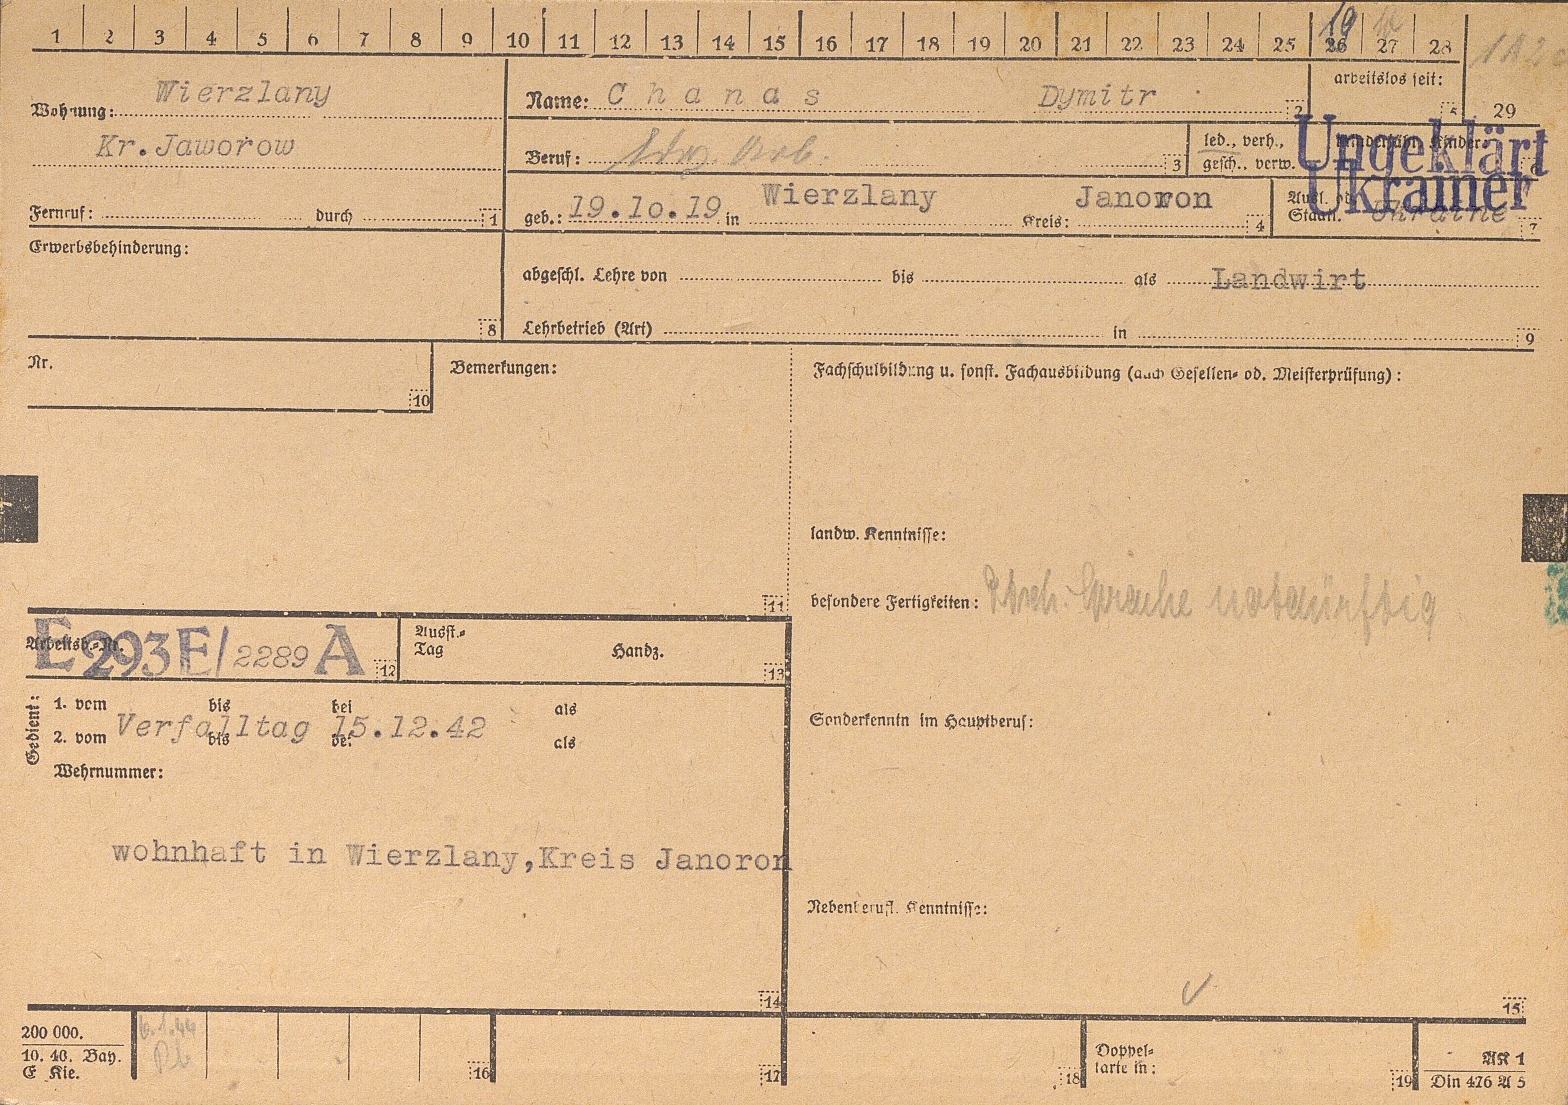 1 2 3 4 5 6 7 8 9 10 11 12 13 14 15 16 17 18 19 20 21 22 23 24 25 26 27 28
19
Wohnung: Wierzlany
Kr. Jaworow
Fernruf: durch 1
Name: Chanas Dymitr 2
arbeitslos seit: 5
29
Beruf: 3
led., verh.,
gesch., verw.
minderjähr. Kinder:
Ungeklärt
Ukrainer
geb.: 19.10.19 in Wierzlany Kreis: Janoron 4
Ausl. od.
Staatl. Ukraine 7
Erwerbsbehinderung:
8
abgeschl. Lehre von bis als Landwirt
Lehrbetrieb (Art) in 9
Nr.
10
Bemerkungen:
11
Fachschulbildung u. sonst. Fachausbildung (auch Gesellen- od. Meisterprüfung):
landw. Kenntnisse:
besondere Fertigkeiten: Dtsch. Sprache notdürftig
Sonderkenntn im Hauptberuf:
Nebenberufl. Kenntnisse:
15
Arbeitsb.-Nr. E 293E/2289 A 12
Ausst.-
Tag
Handz.
13
Gedient:
1. vom bis bei als
2. vom bis bei als
Verfalltag 15.12.42
Wehrnummer:
wohnhaft in Wierzlany,Kreis Janoron
14
200 000.
10. 40. Bay.
E Kie.
6.1.44
16
17
18
Doppel-
karte in:
19
AK 1
Din 476 A 5